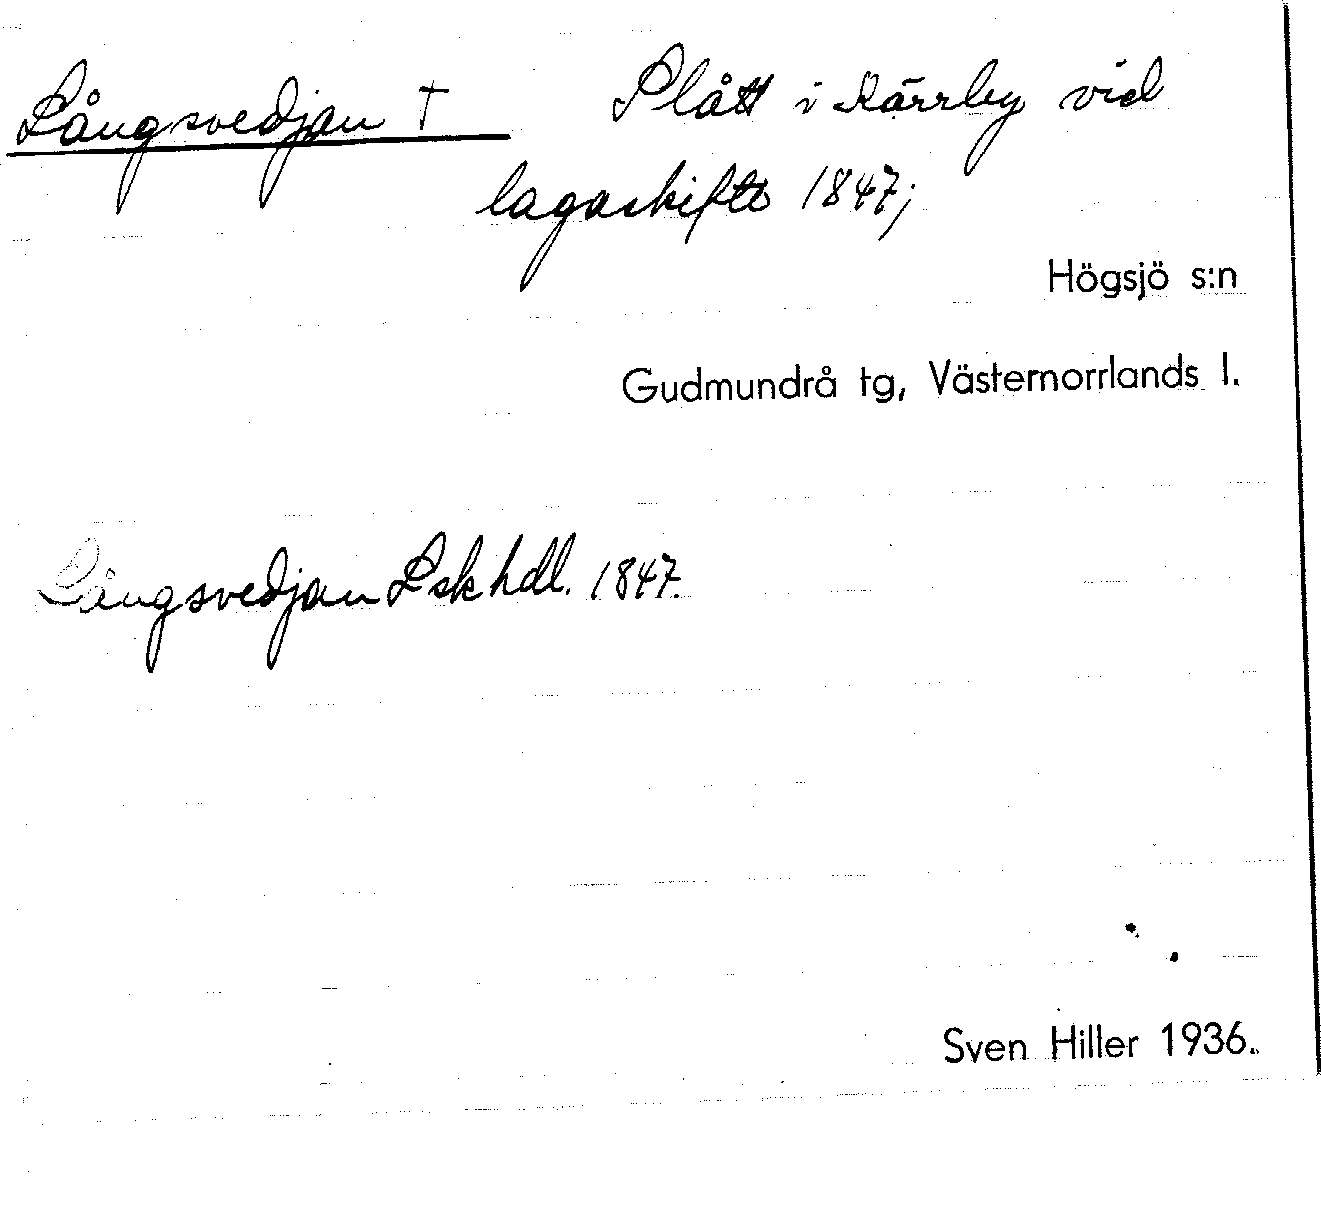 Långsvedjan † Slått i Kärrby vid
lagaskifte 1847;
Högsjö s:n
Gudmundrå tg, Västernorrlands l.
Långsvedjan Lsk hdl. 1847.
Sven Hiller 1936.